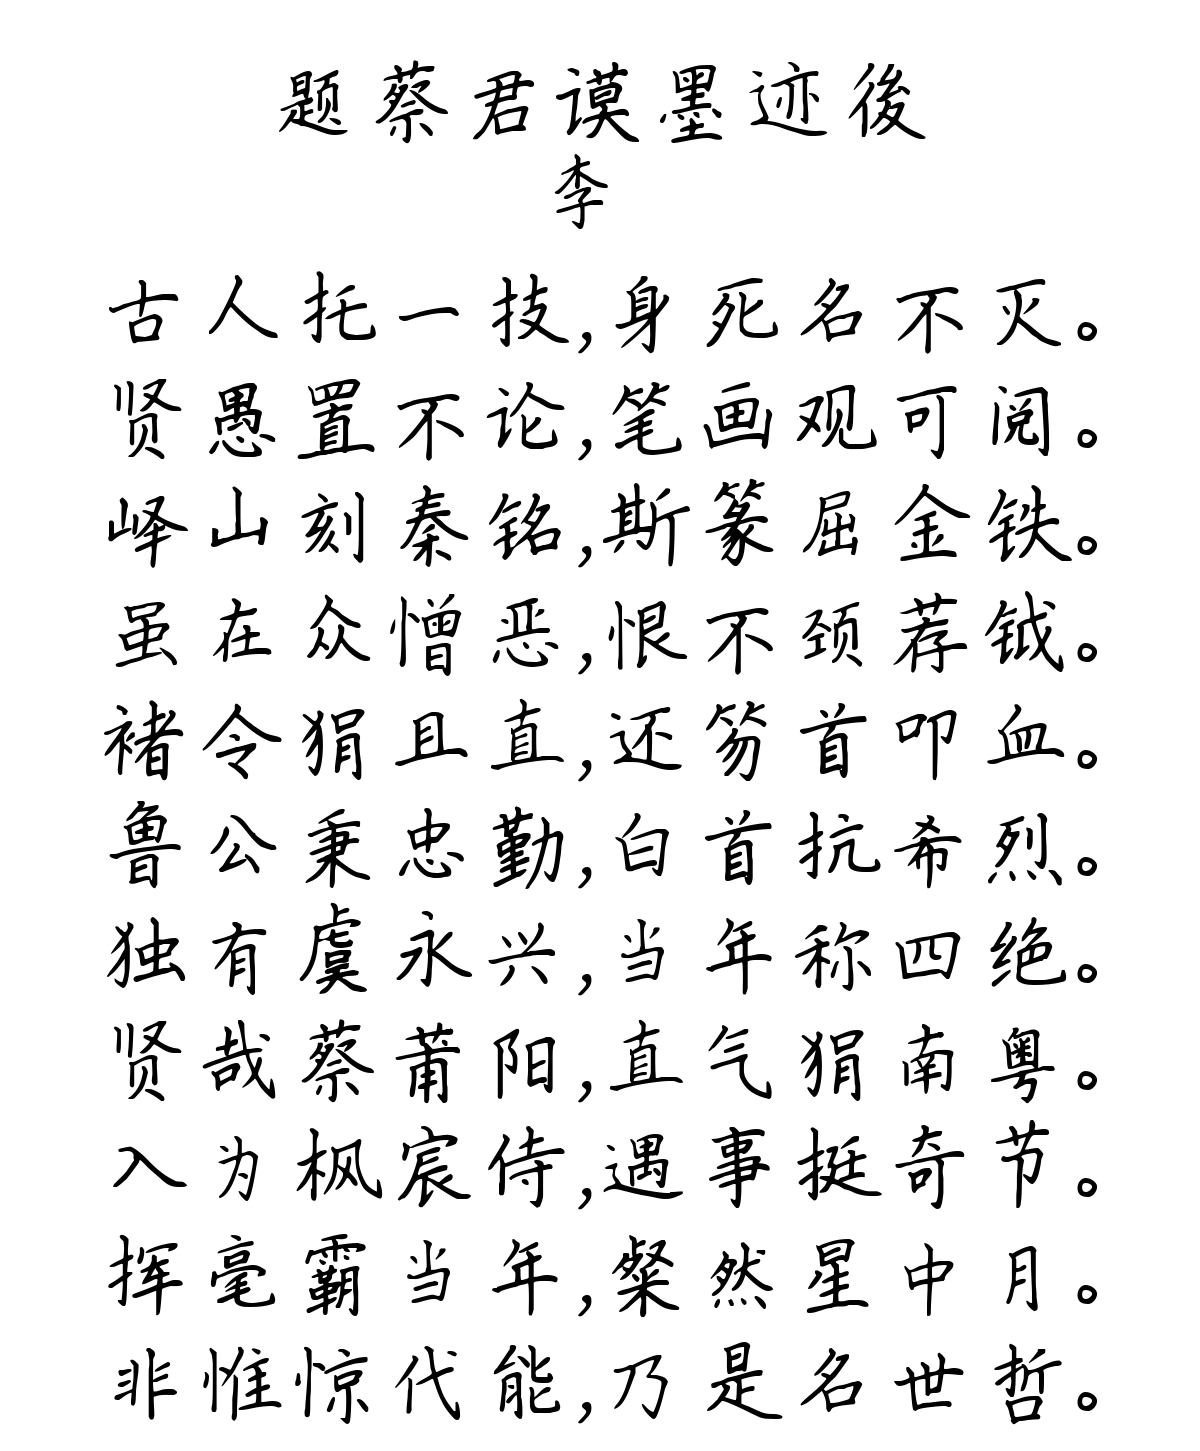 题蔡君谟墨迹後
李
古人托一技,身死名不灭。
贤愚置不论,笔画观可阅。
峄山刻秦铭,斯篆屈金铁。
虽在众憎恶,恨不颈荐钺。
褚令狷且直,还笏首叩血。
鲁公秉忠勤,白首抗希烈。
独有虞永兴,当年称四绝。
贤哉蔡莆阳,直气狷南粤。
入为枫宸侍,遇事挺奇节。
挥毫霸当年,粲然星中月。
非惟惊代能,乃是名世哲。